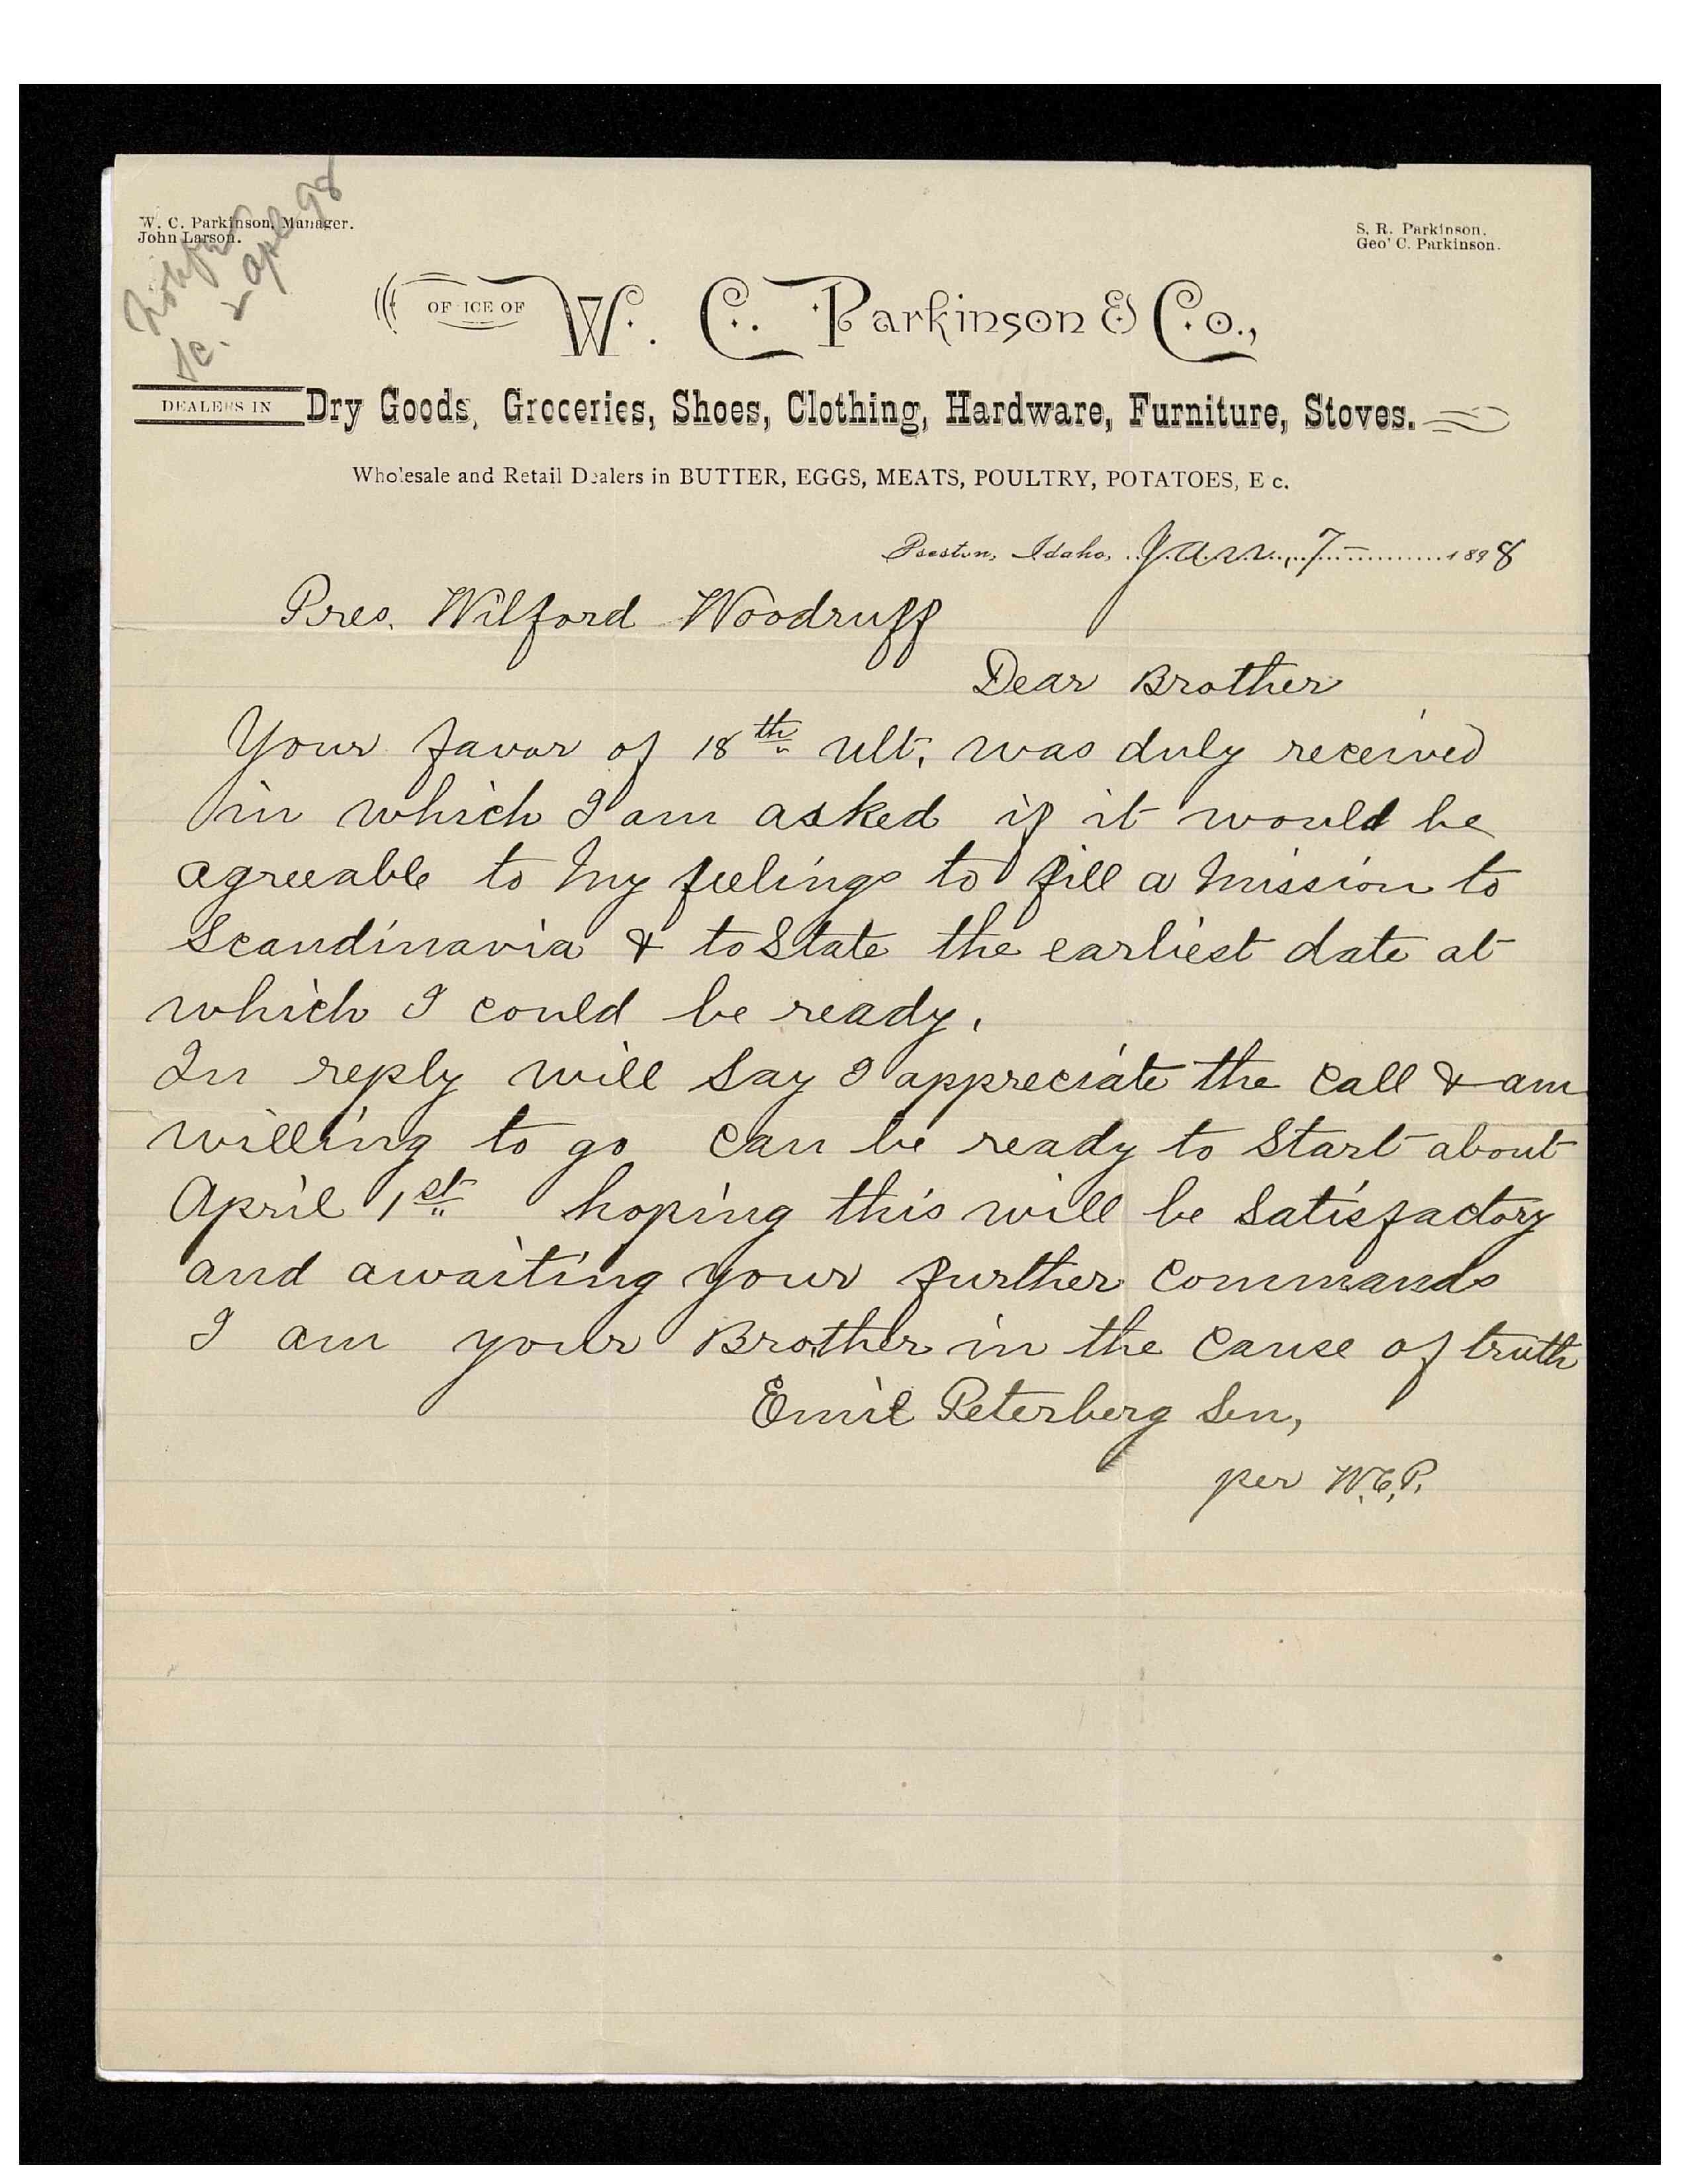 W. C. Parkinson, Manager.
John Larson.
S. R. Parkinson.
Geo' C. Parkinson.
Sc. 2 Apl 98
OF ICE OF W. C. Parkinson & Co.,
DEALERS IN Dry Goods, Groceries, Shoes, Clothing, Hardware, Furniture, Stoves.
Wholesale and Retail Dealers in BUTTER, EGGS, MEATS, POULTRY, POTATOES, E c.
Preston, Idaho, Jan, 7 — 1898
Pres. Wilford Woodruff
Dear Brother
Your favor of 18th ult, was duly received
in which I am asked if it would be
agreeable to my feelings to fill a mission to
Scandinavia & to State the earliest date at
which I could be ready.
In reply will Say I appreciate the call & am
willing to go can be ready to Start about
April 1st hoping this will be Satisfactory
and awaiting your further commands
I am your Brother in the cause of truth
Emil Peterberg Sen,
per W.C.P.